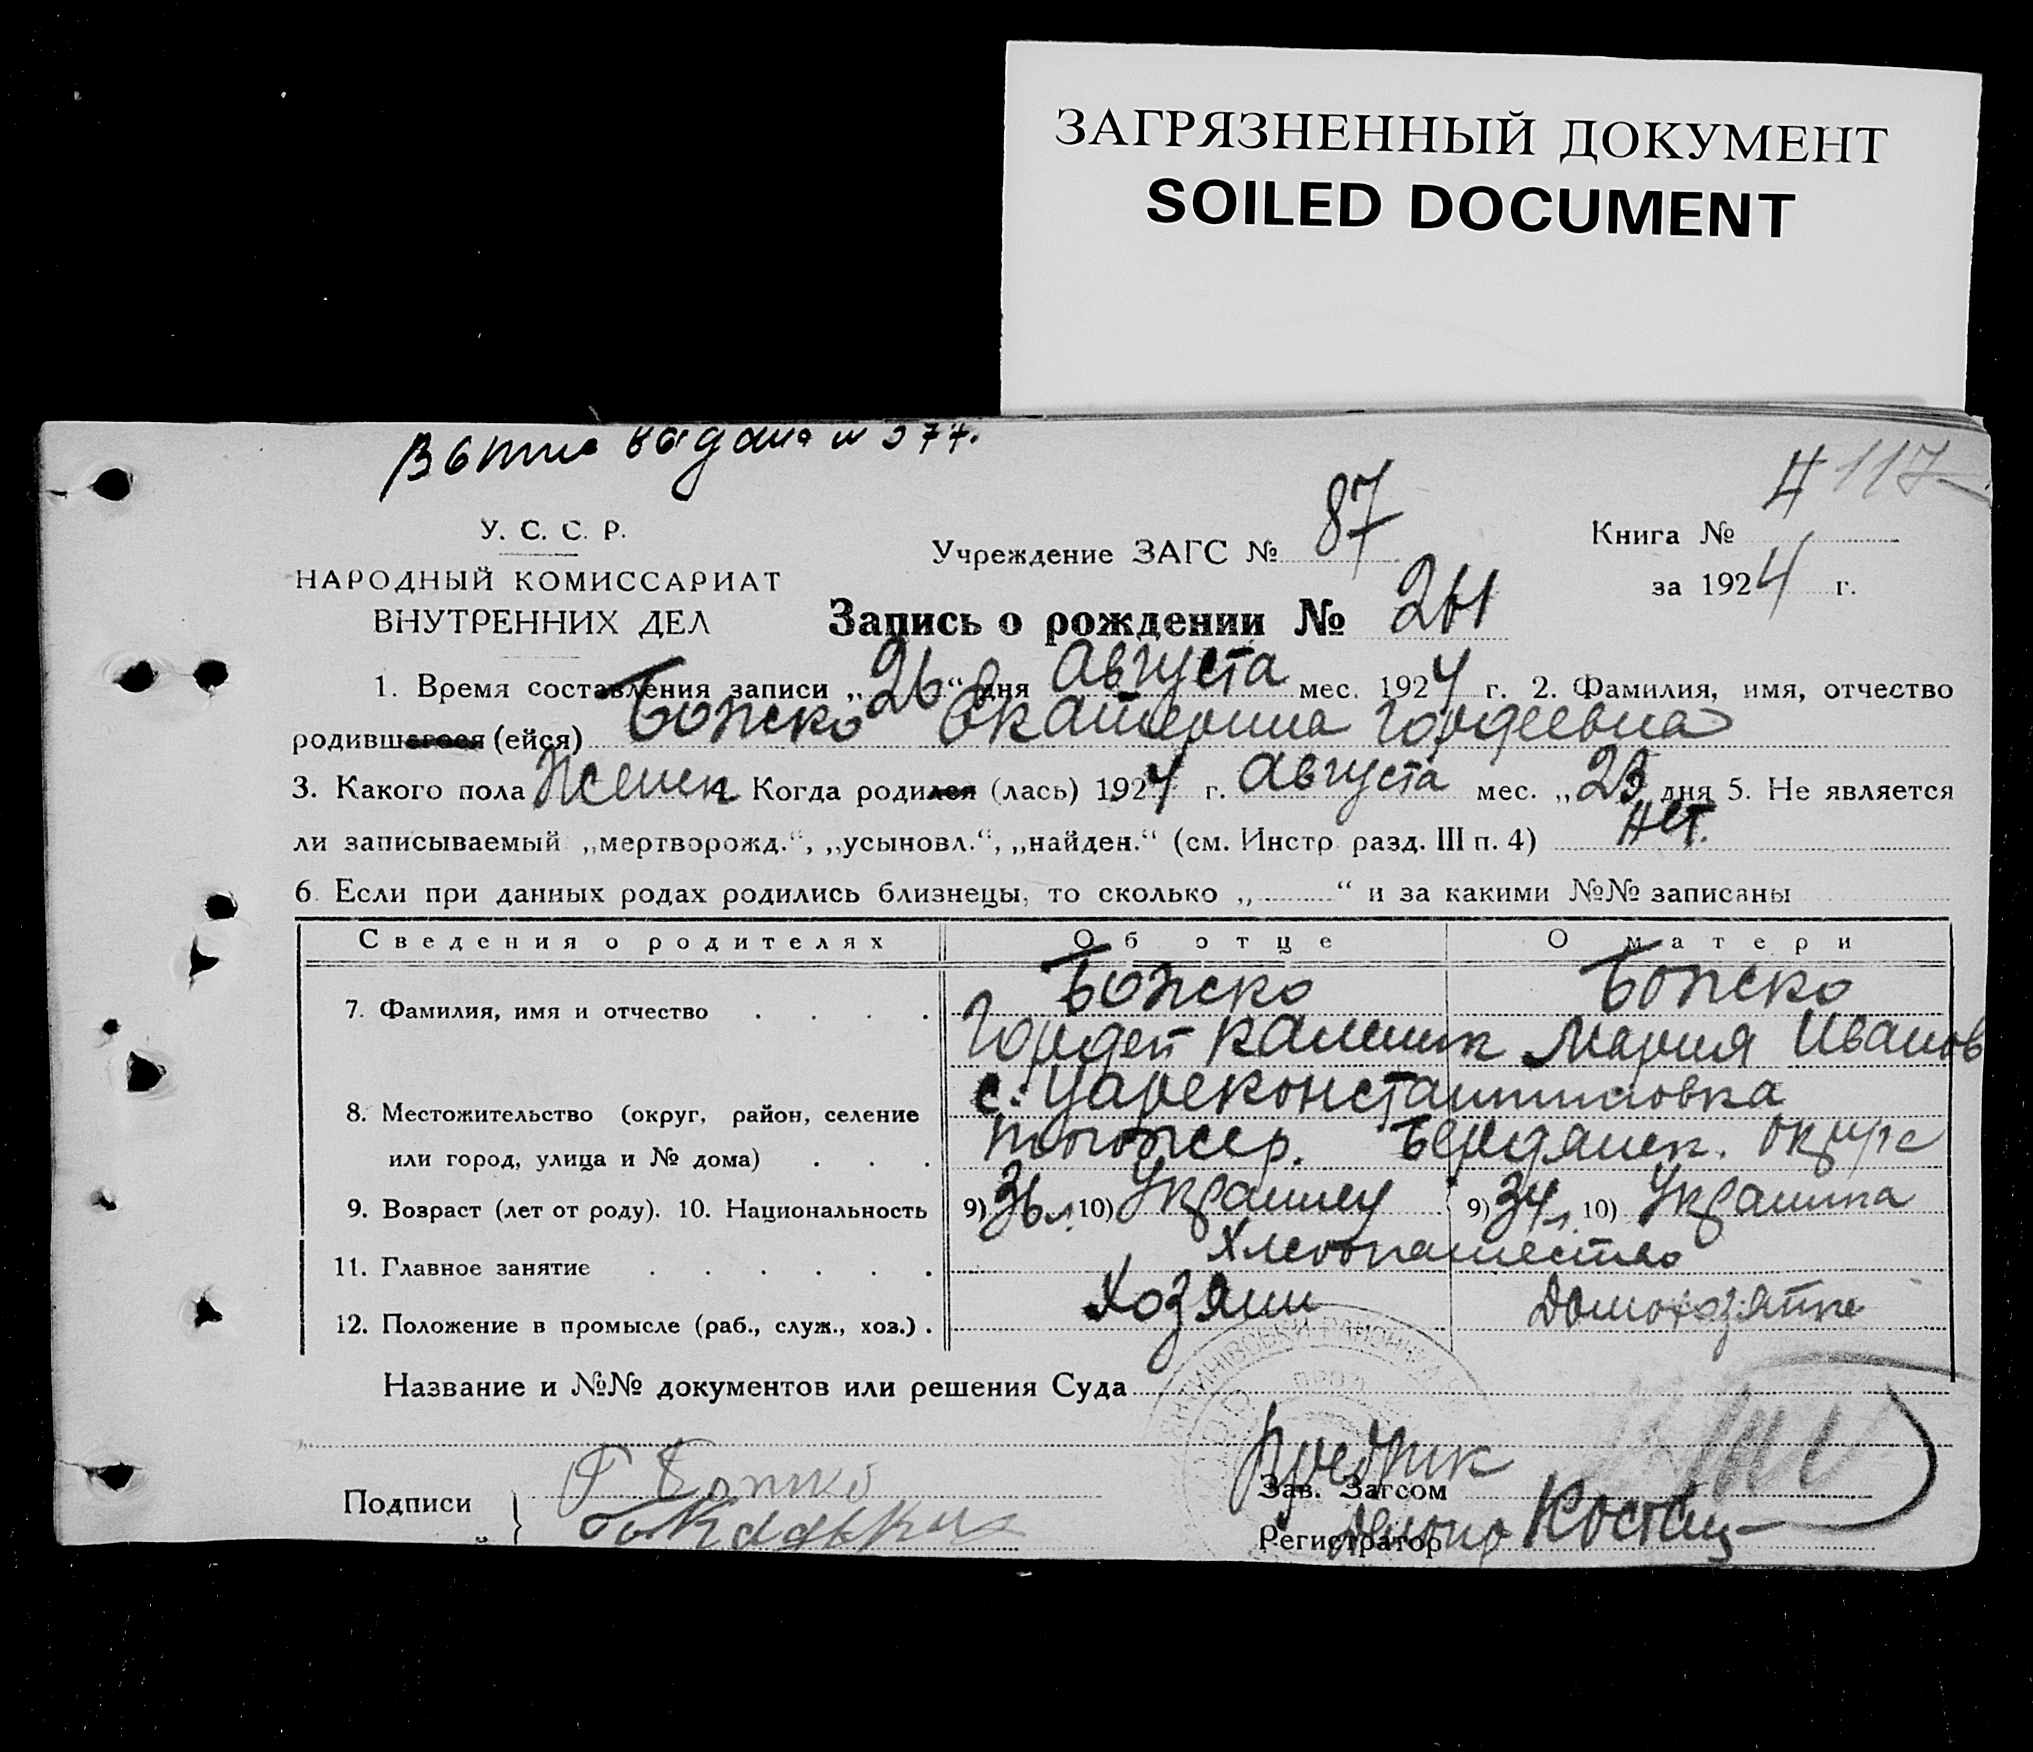 ЗАГРЯЗНЕННЫЙ ДОКУМЕНТ
SOILED DOCUMENT
выдана № 377.
117
У. С. С. Р.
Учреждение ЗАГС № 87
Книга №
НАРОДНЫЙ КОМИССАРИАТ
за 1924 г.
ВНУТРЕННИХ ДЕЛ
Запись о рождении № 261
1. Время составления записи „26“ дня Августа мес. 1924 г. 2. Фамилия, имя, отчество
родившегося (ейся) Божко Екатерина Гордеевна
3. Какого пола Женск Когда родился (лась) 1924 г. Августа мес. „23 дня 5. Не является
ли записываемый „мертворожд.“, „усыновл.“, „найден.“ (см. Инстр. разд. III п. 4) нет.
6. Если при данных родах родились близнецы, то сколько „ “ и за какими №№ записаны
Сведения о родителях Об отце О матери
7. Фамилия, имя и отчество Божко Божко
Гордей Калиник Мария Иванов
с. Цареконстантиновка
8. Местожительство (округ, район, селение
или город, улица и № дома) тогожер. Бердянск. округе
9. Возраст (лет от роду). 10. Национальность 9) 36 л. 10) Украинец 9) 34 л. 10) Украинка
11. Главное занятие Хлебопашество
12. Положение в промысле (раб., служ., хоз.) Хозяин Домохозяйка
Название и №№ документов или решения Суда
Подписи Г Божко
Зав. Загсом
Регистратор